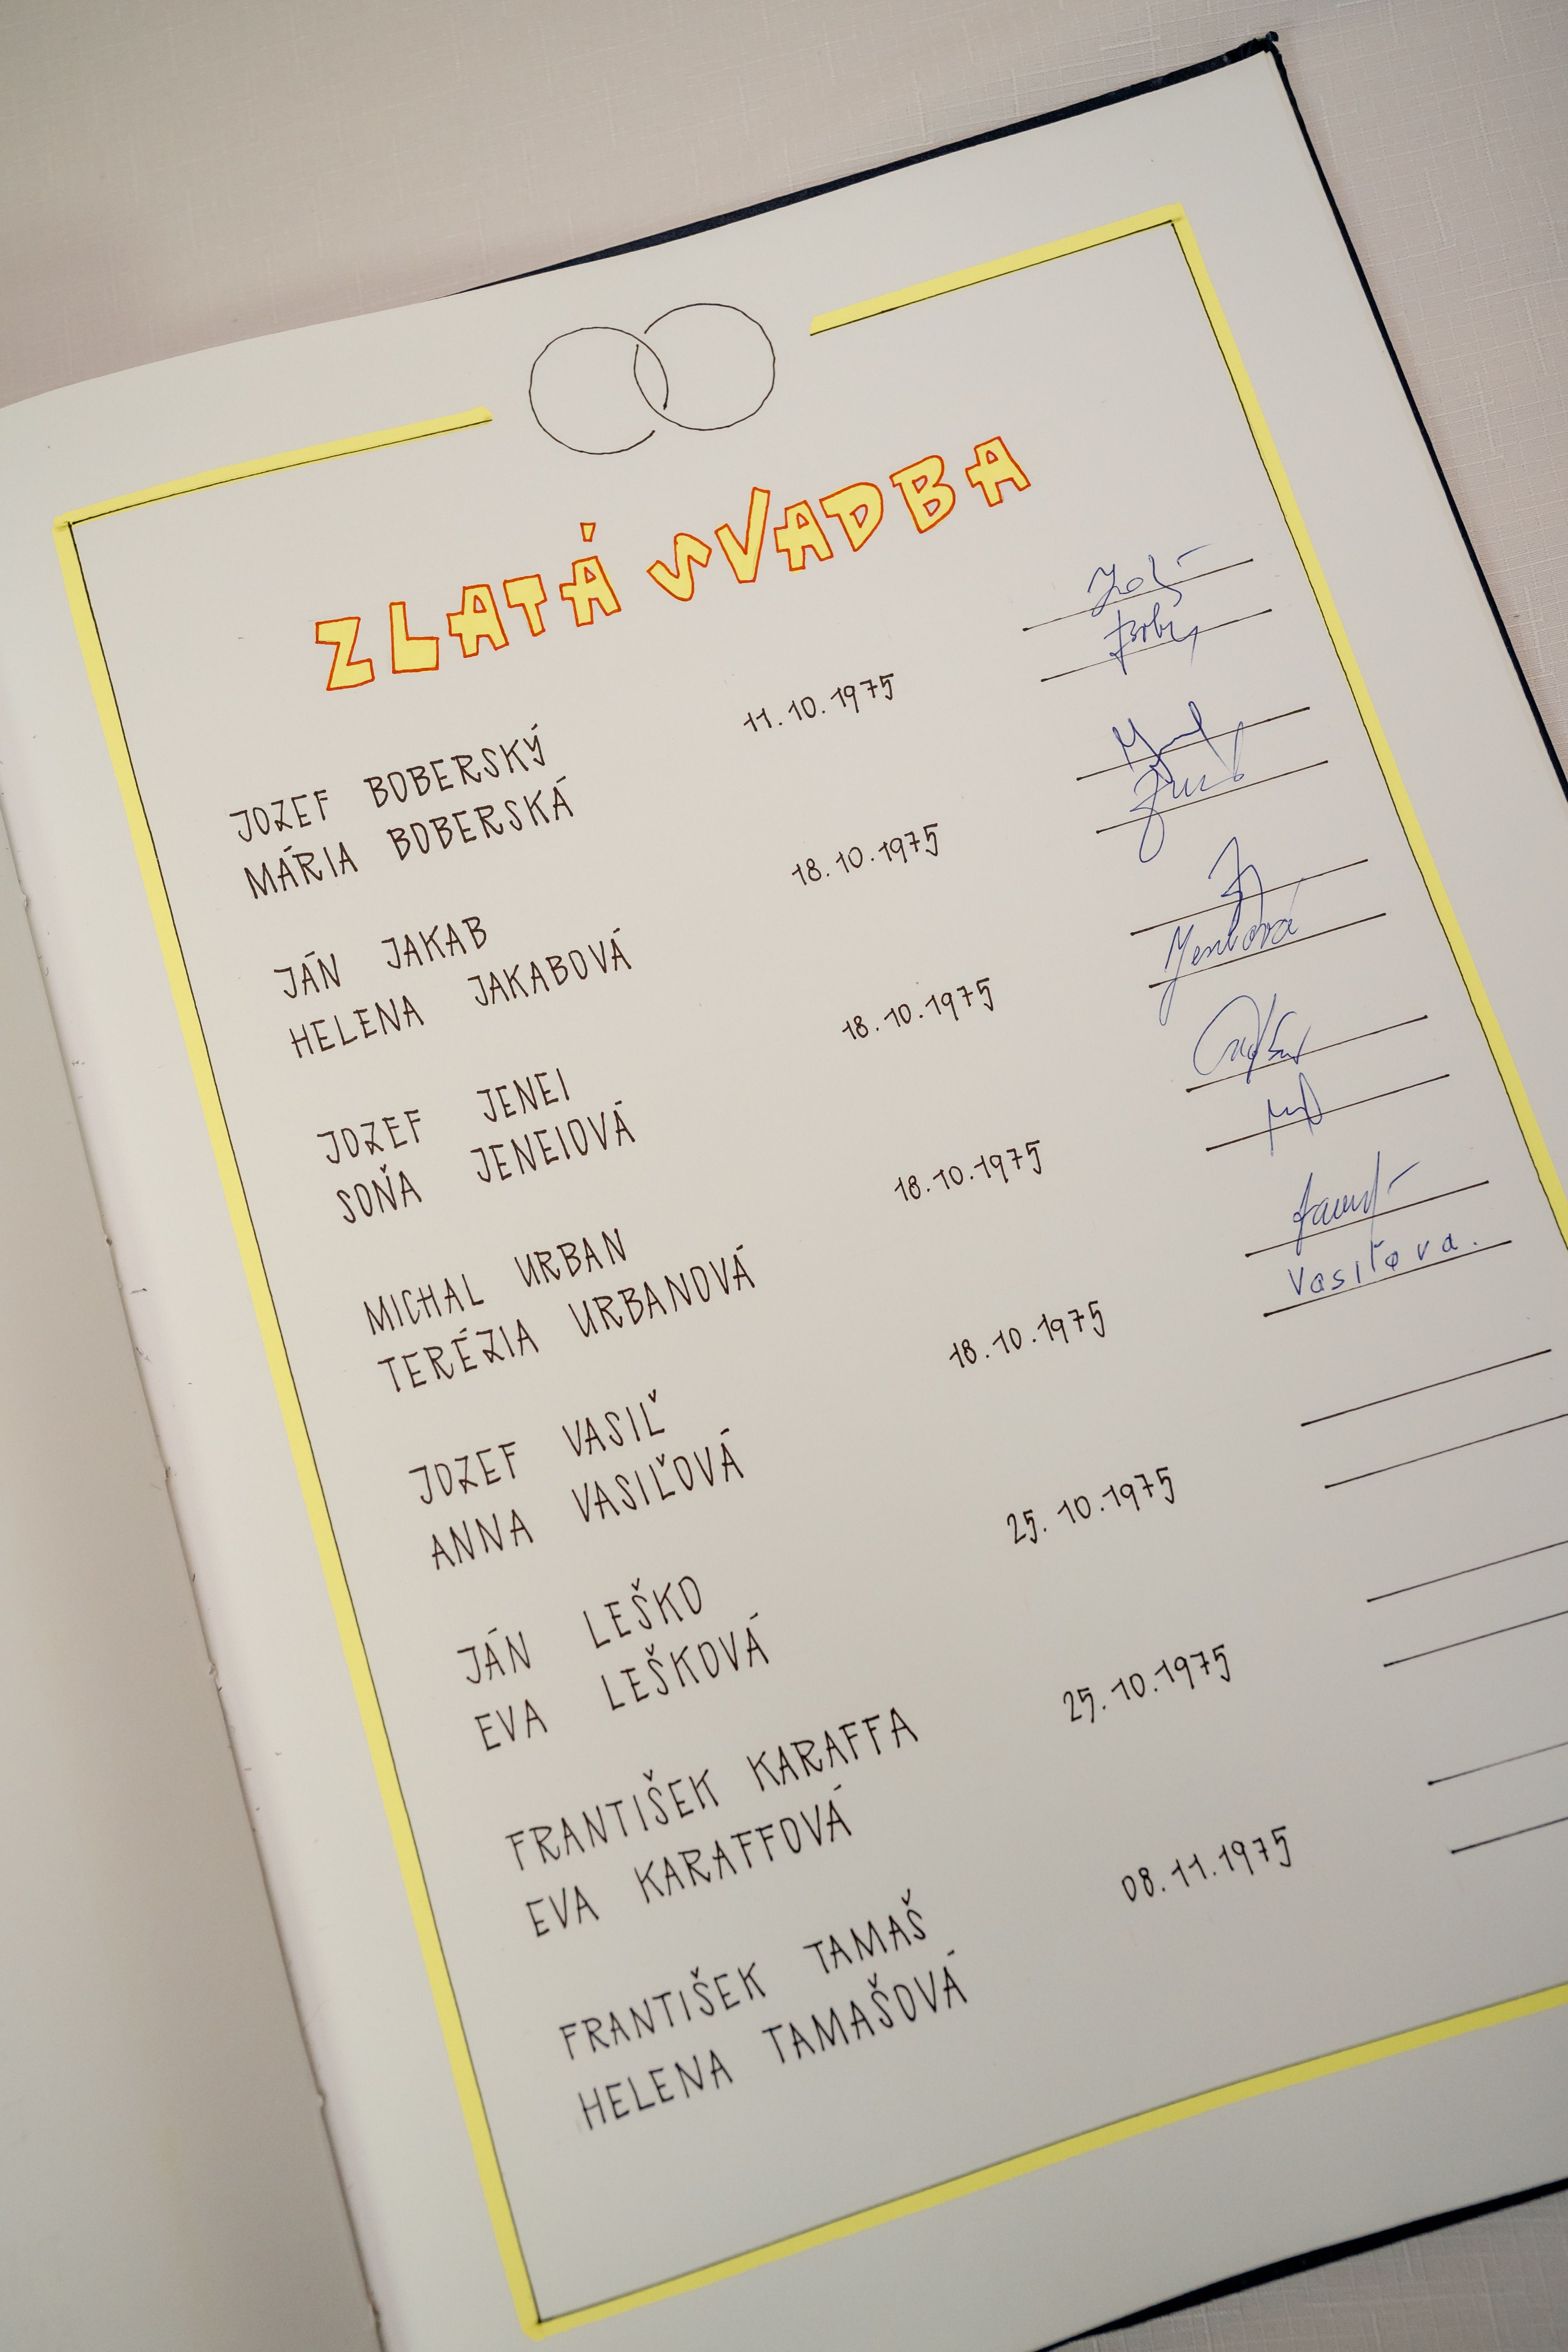 ZLATÁ SVADBA
JOZEF BOBERSKÝ 11.10.1975
MÁRIA BOBERSKÁ
JÁN JAKAB 18.10.1975
HELENA JAKABOVÁ
JOZEF JENEI 18.10.1975
SOŇA JENEIOVÁ
MICHAL URBAN 18.10.1975
TERÉZIA URBANOVÁ
JOZEF VASIĽ 18.10.1975
ANNA VASIĽOVÁ Vasiľova.
JÁN LEŠKO 25.10.1975
EVA LEŠKOVÁ
FRANTIŠEK KARAFFA 25.10.1975
EVA KARAFFOVÁ
FRANTIŠEK TAMAŠ 08.11.1975
HELENA TAMAŠOVÁ